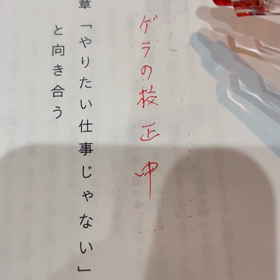 ゲラの校正中
章「やりたい仕事じゃない」
と向き合う